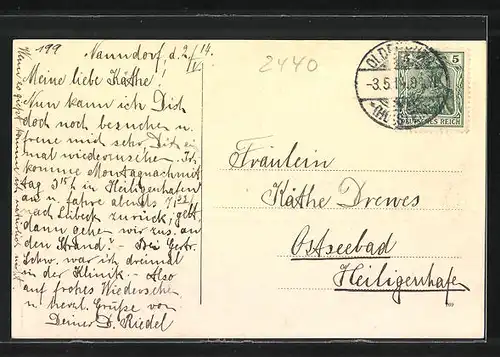 199
Nanndorf, d. 2./IV. 14.
2440
Meine liebe Käthe!
Nun kann ich Dich
doch noch besuchen u.
freue mich sehr, Dich ein-
mal wiederzusehen. Ich
komme Montagnachmit-
tag 3 15 h in Heiligenhafen
an u. fahre abends 7 22 h
nach Lübeck zurück; gelt,
dann gehen wir zus. an
den Strand? - Bei Gertr.
Schw. war ich dreimal
in der Klinik. - Also
auf frohes Wiedersehen
u. herzl. Grüße von
Deiner D. Riedel
OLDENBURG
-3.5.14.
5
DEUTSCHES REICH
Fräulein
Käthe Drewes
Ostseebad
Heiligenhafen